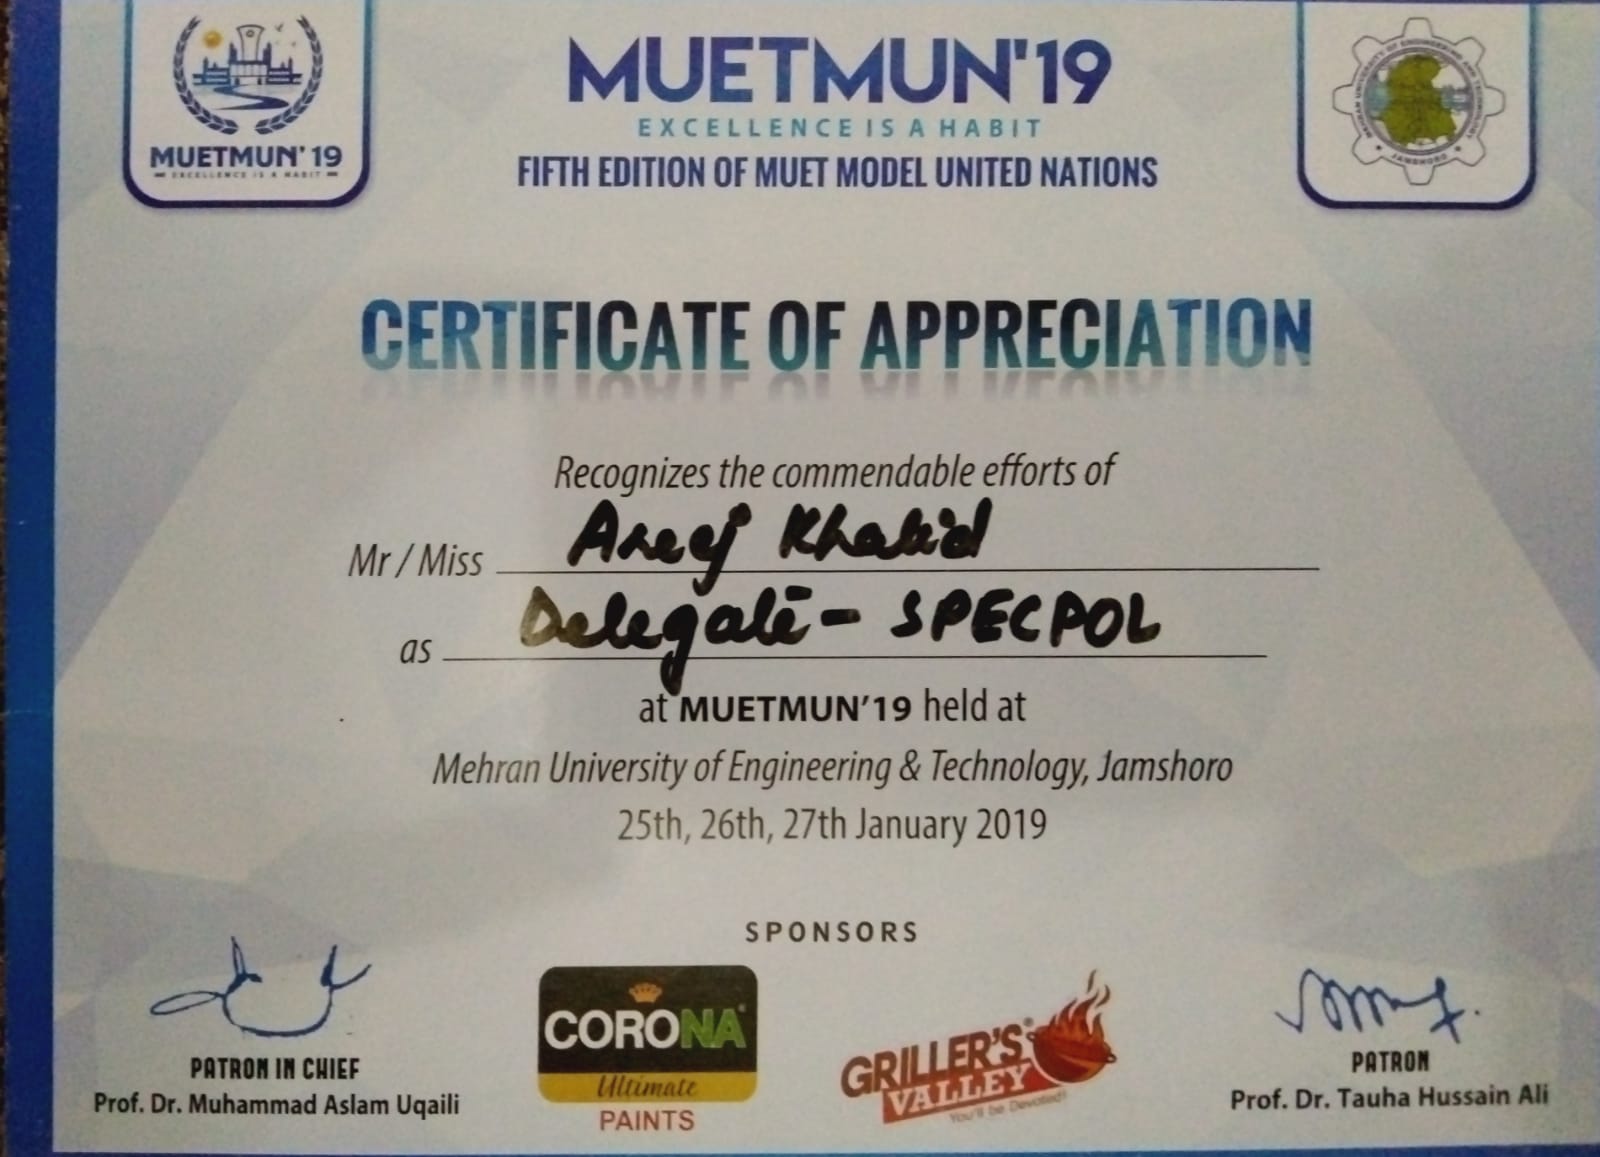 MUETMUN'19
EXCELLENCE IS A HABIT
MUETMUN'19
EXCELLENCE IS A HABIT
FIFTH EDITION OF MUET MODEL UNITED NATIONS
MEHRAN UNIVERSITY OF ENGINEERING AND TECHNOLOGY
JAMSHORO
CERTIFICATE OF APPRECIATION
Recognizes the commendable efforts of
Mr / Miss Areej Khalid
as Delegate - SPECPOL
at MUETMUN'19 held at
Mehran University of Engineering & Technology, Jamshoro
25th, 26th, 27th January 2019
SPONSORS
PATRON IN CHIEF
Prof. Dr. Muhammad Aslam Uqaili
CORONA®
Ultimate
PAINTS
GRILLER'S®
VALLEY
You'll be Devoted!
PATRON
Prof. Dr. Tauha Hussain Ali